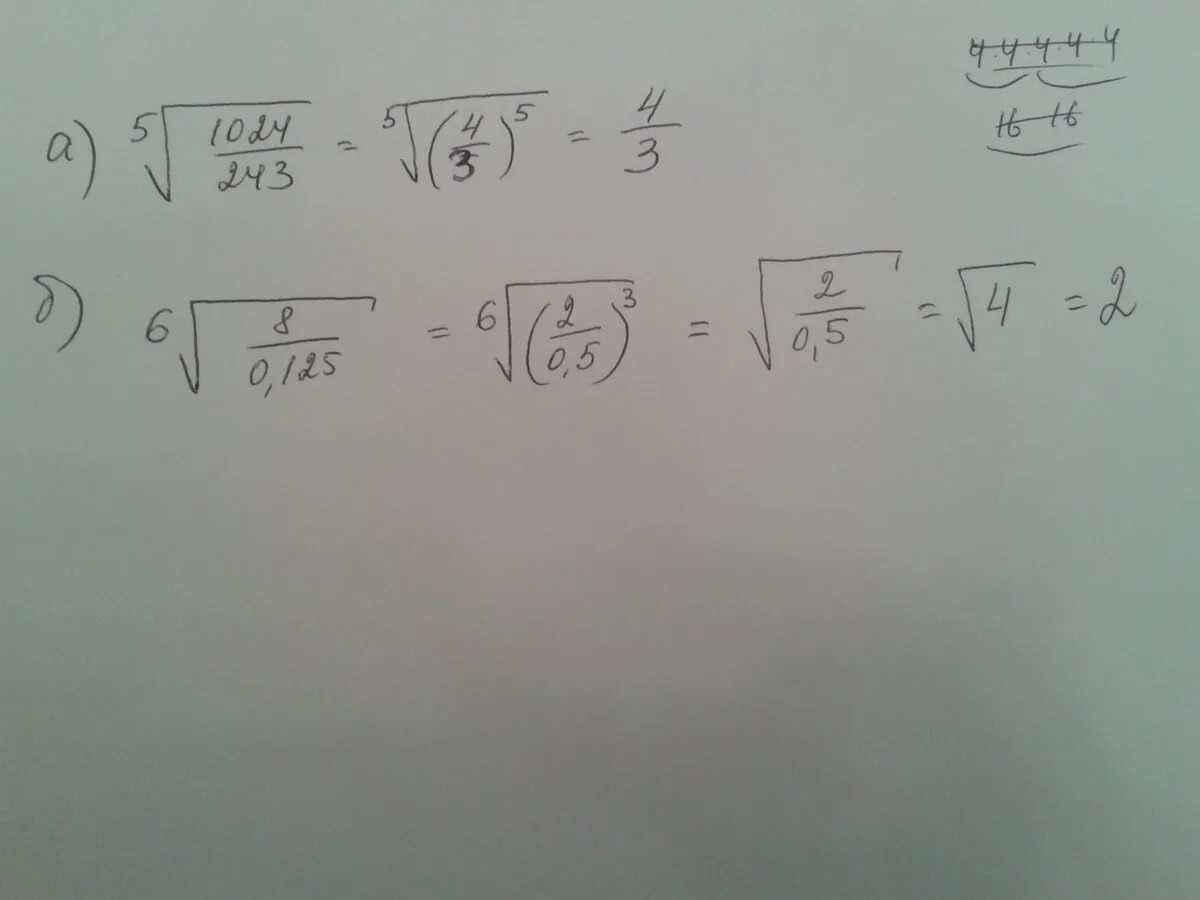 4·4·4·4·4
16 16
а) ⁵√(1024/243) = ⁵√((4/3)⁵) = 4/3
б) ⁶√(8/0,125) = ⁶√((2/0,5)³) = √(2/0,5) = √4 = 2